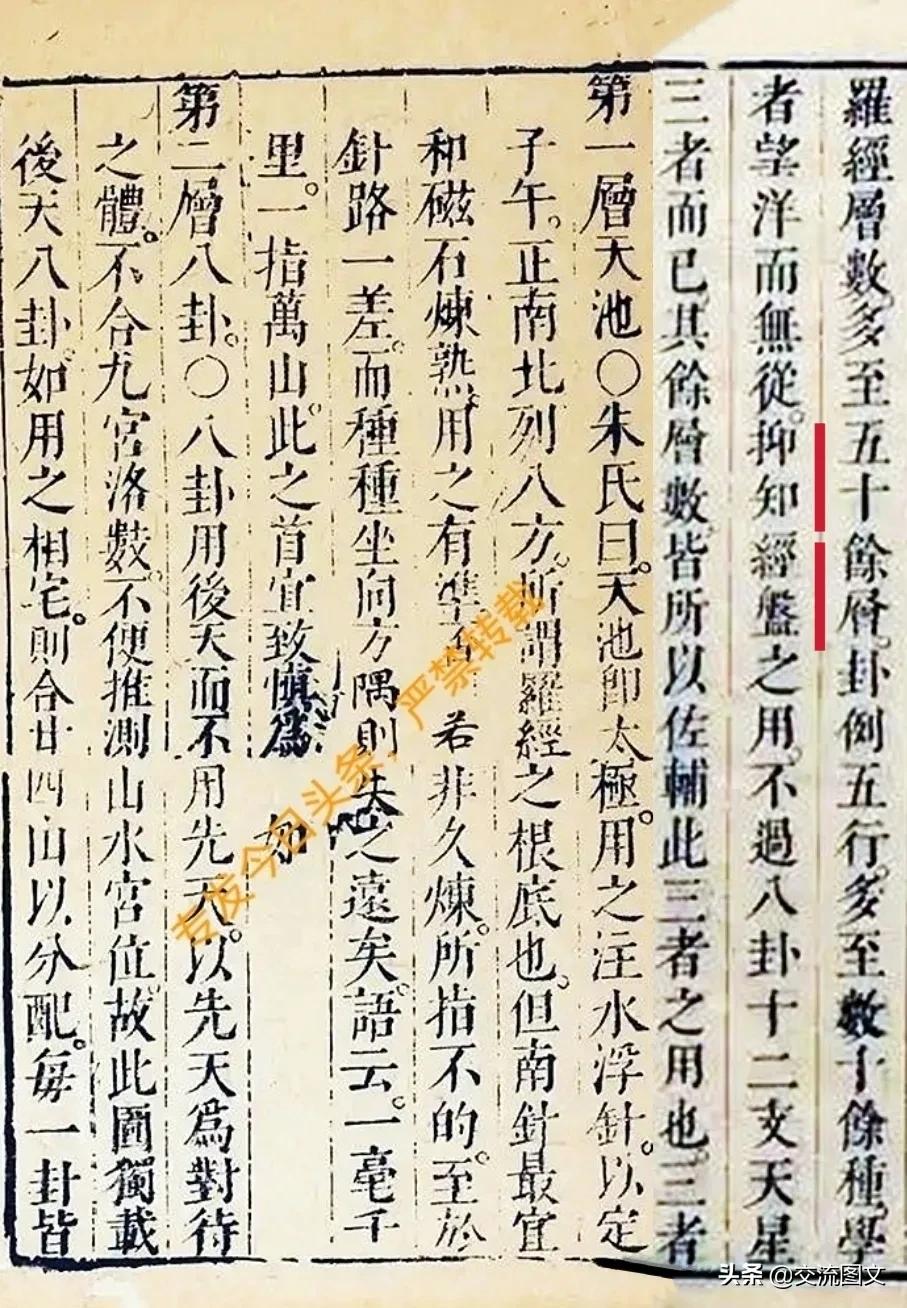 羅經層數。多至五十餘層。卦例五行。多至數十餘種。學
者望洋而無從。抑知經盤之用。不過八卦十二支天星
三者而已。其餘層數。皆所以佐輔此三者之用也。三者
第一層天池〇朱氏曰。天池即太極。用之注水浮針。以定
子午。正南北列八方。所謂羅經之根底也。但南針最宜
和磁石煉熟。用之有準。若非久煉。所指不的。至於
針路一差。而種種坐向方隅則失之遠矣。語云。一毫千
里。一指萬山。此之首宜致慎為
第二層八卦。〇八卦用後天而不用先天。以先天為對待
之體。不合九宮洛數。不便推測山水宮位。故此圖獨載
後天八卦。如用之相宅。則合廿四山以分配。每一卦皆
专发今日头条，严禁转载
头条 @交流图文